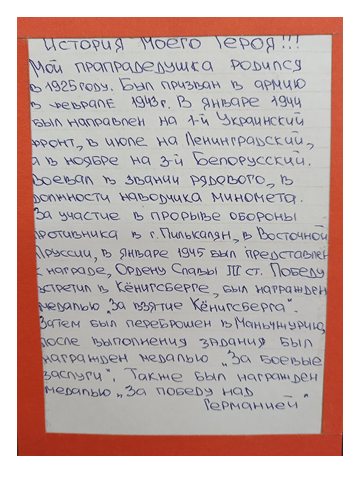 История моего героя!!!
Мой прапрадедушка родился
в 1925 году. Был призван в армию
в феврале 1943 г. В январе 1944
был направлен на 1-й Украинский
фронт, в июле на Ленинградский,
а в ноябре на 3-й Белорусский.
Воевал в звании рядового, в
должности наводчика миномета.
За участие в прорыве обороны
противника в г. Пилькален, в Восточной
Пруссии, в январе 1945 был представлен
к награде, Ордену Славы III ст. Победу
встретил в Кёнигсберге, был награжден
медалью "За взятие Кёнигсберга".
Затем был переброшен в Маньчжурию,
после выполнения задания был
награжден медалью „За боевые
заслуги". Также был награжден
медалью „За победу над
Германией"